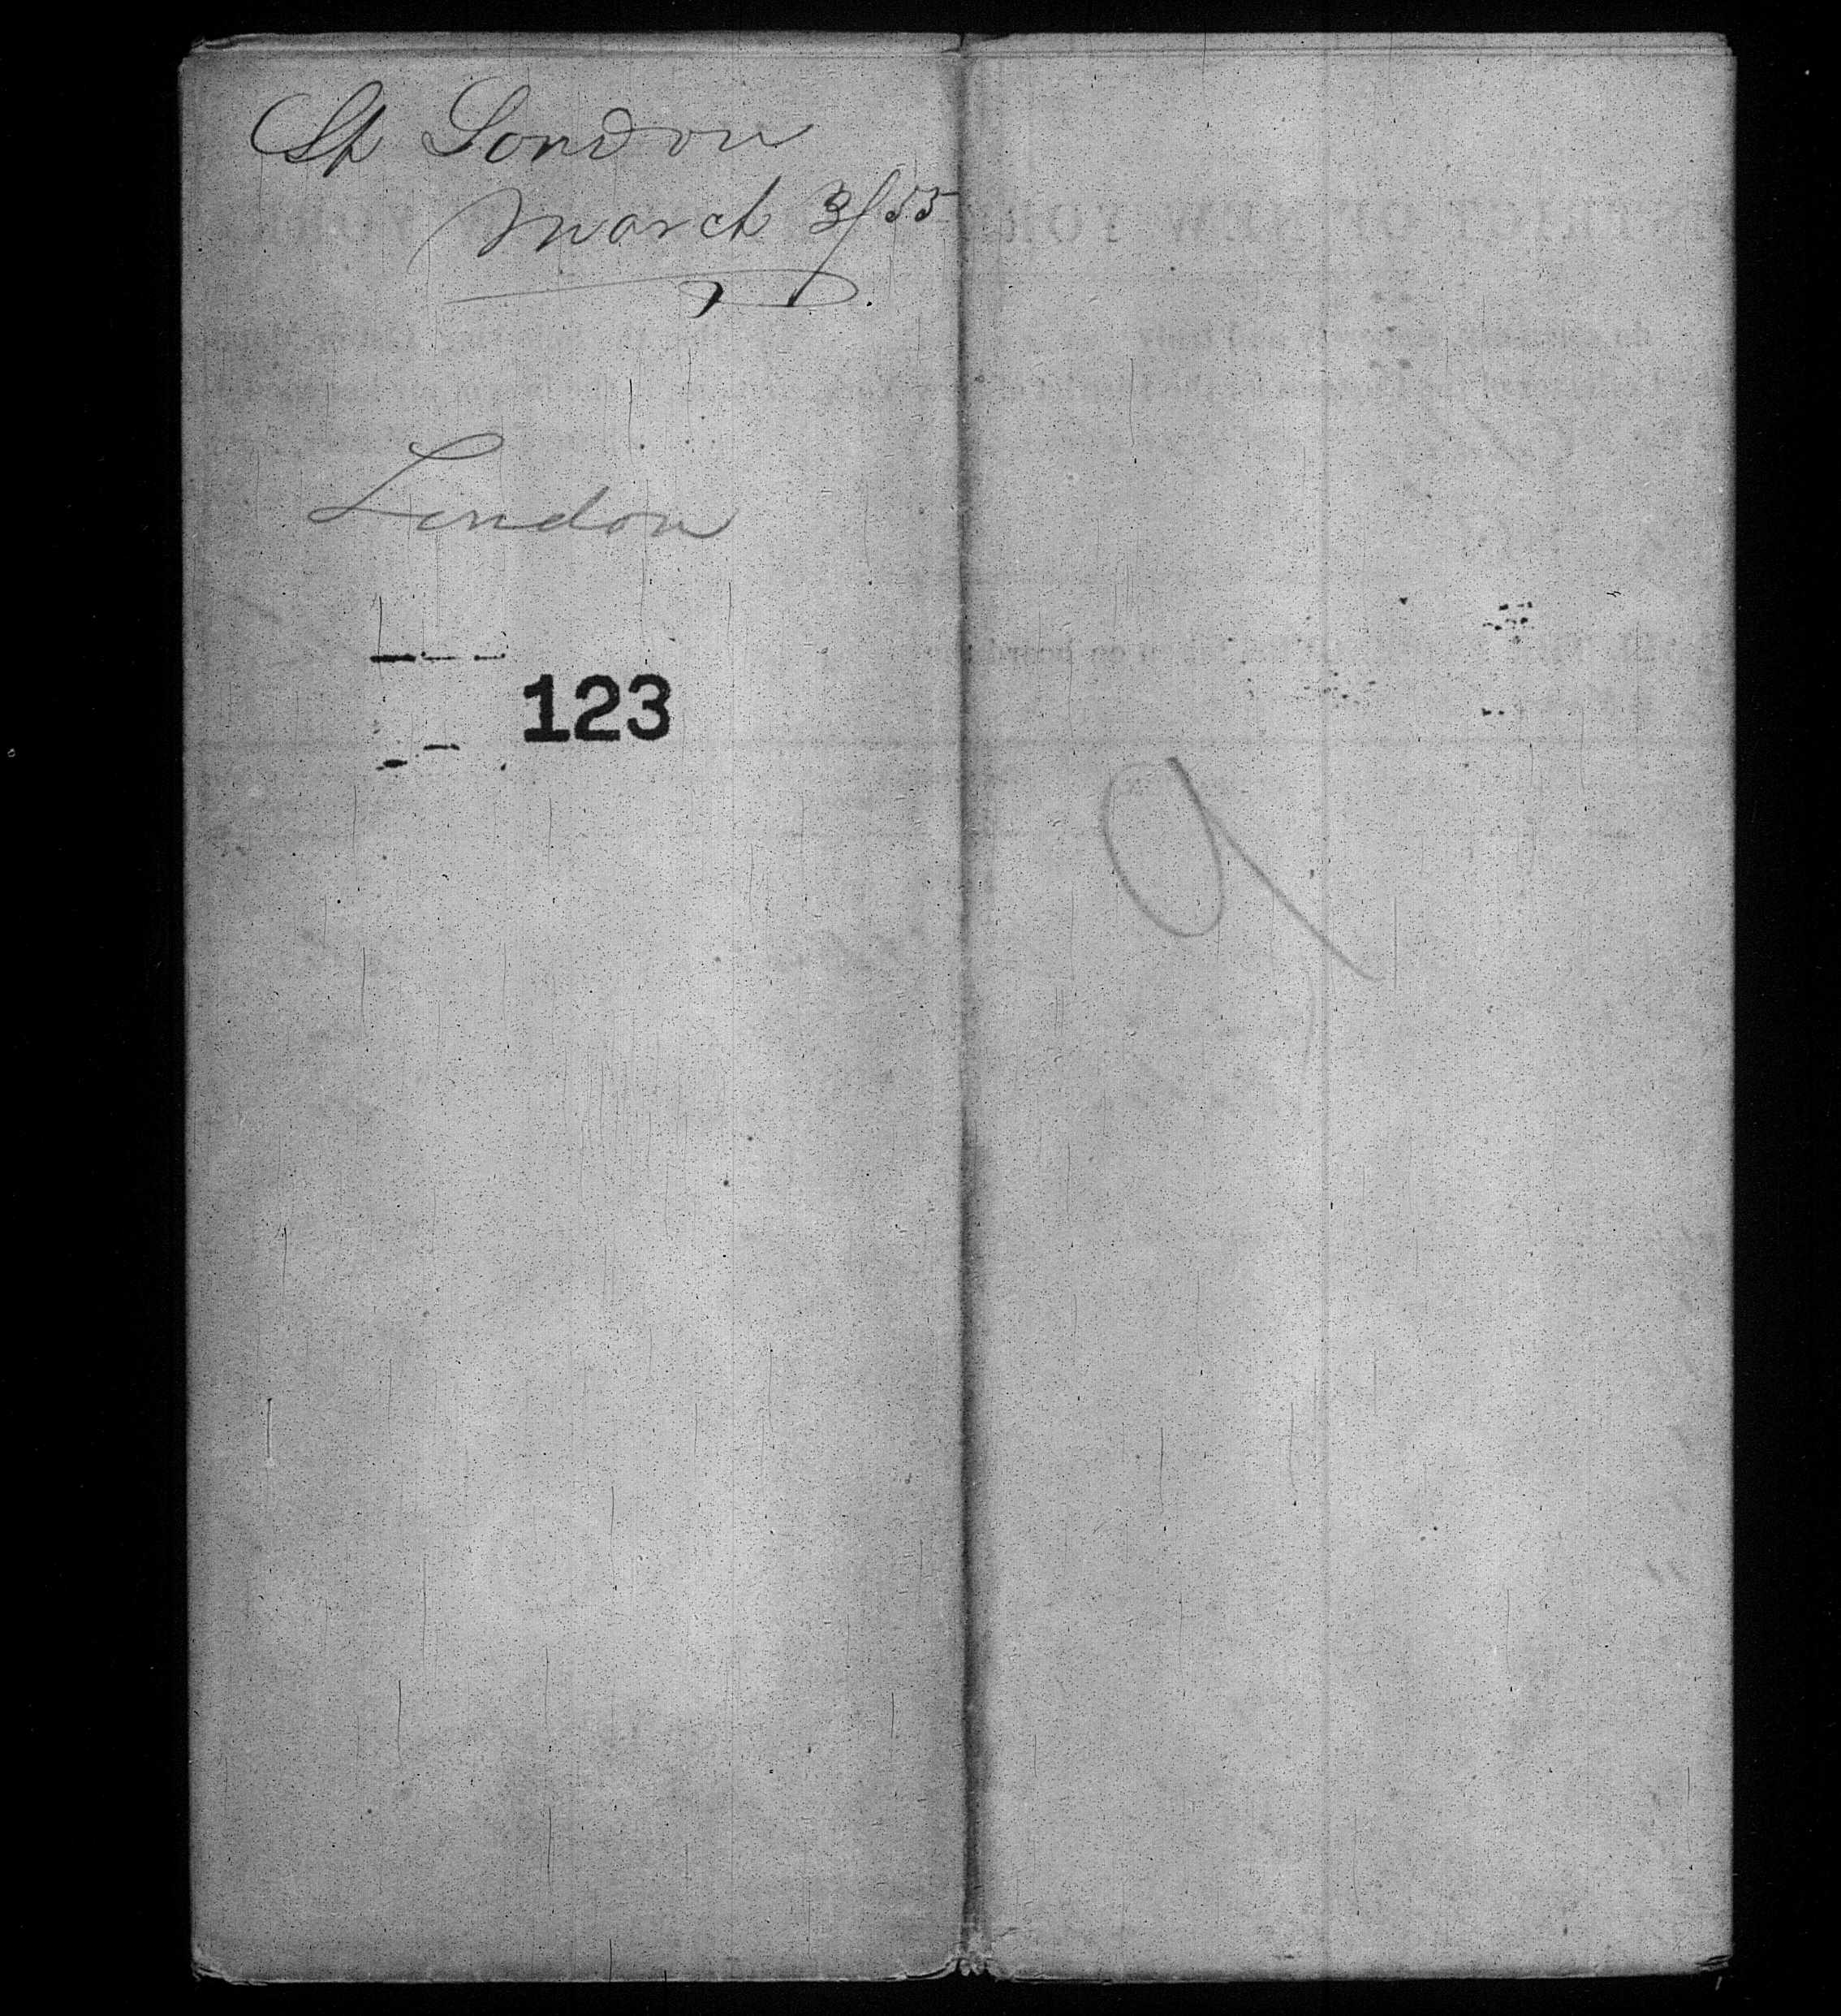 Sp London
March 3/55
London
123
9